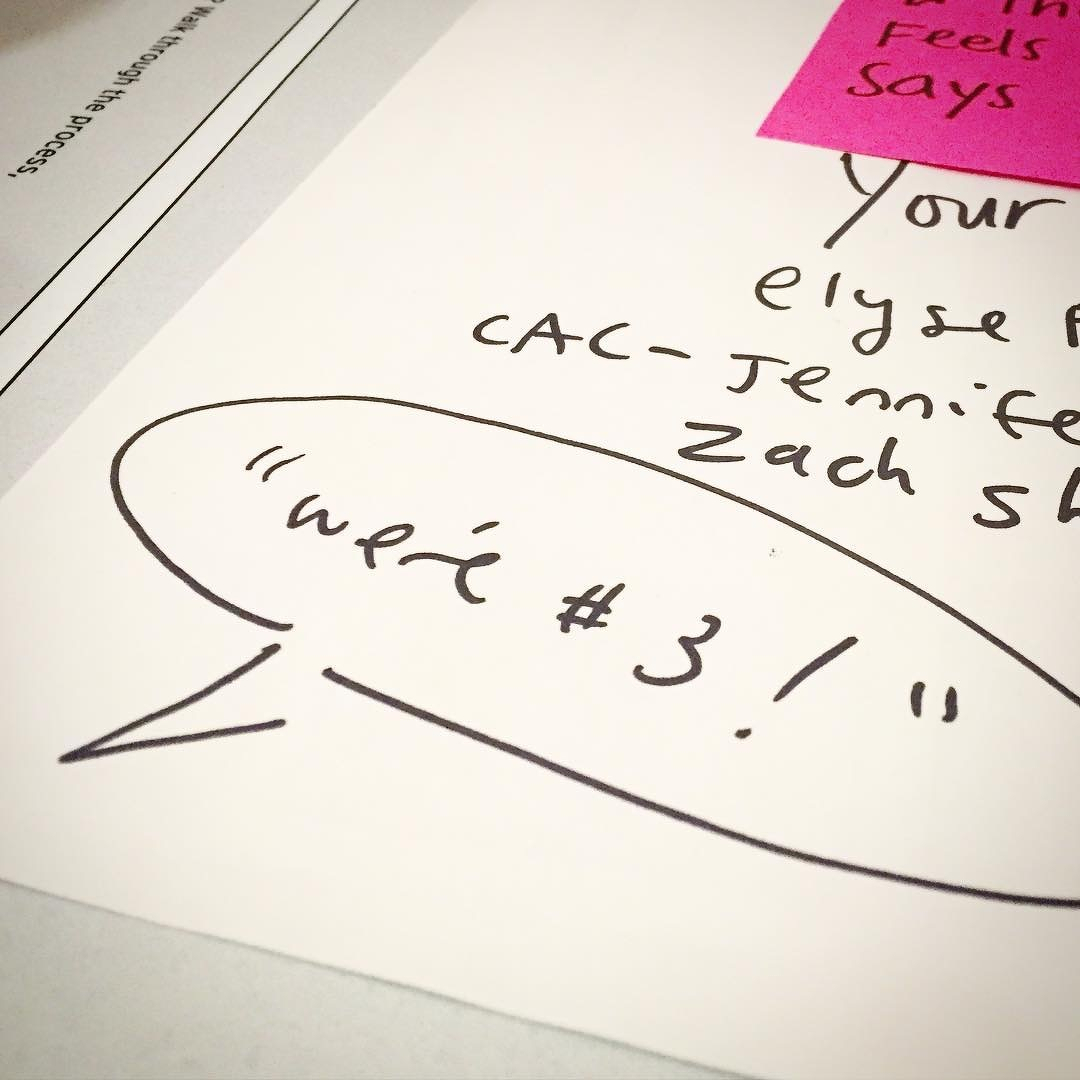 ? Walk through the process,
Feels
Says
Your
elyse
CAC - Jennife
Zach Sh
"we're # 3 ! "